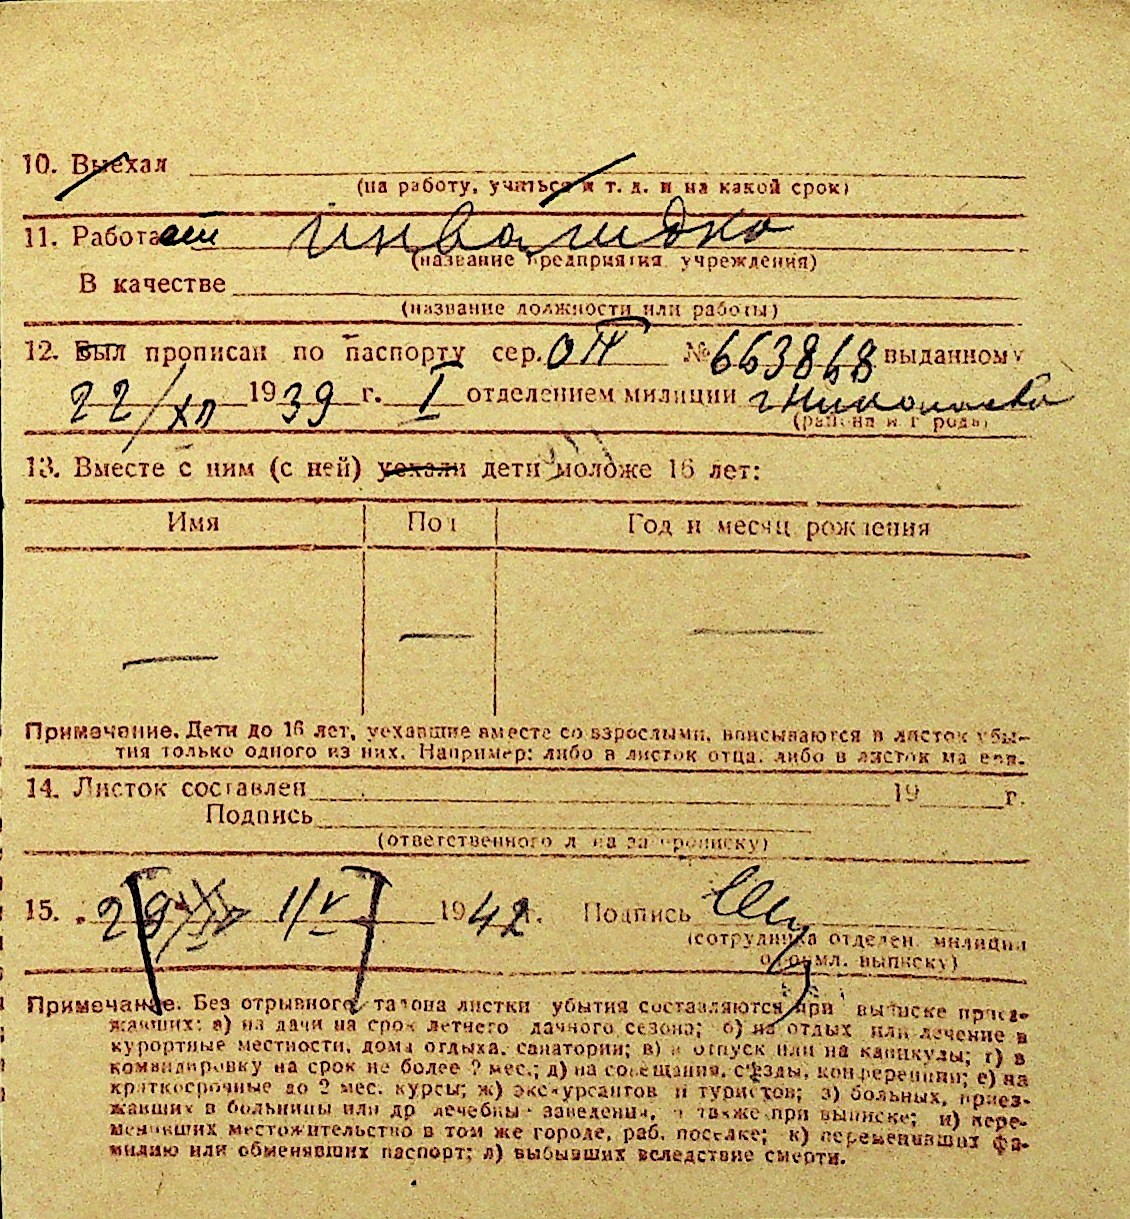 10. Выехал
(на работу, учиться и т. д. и на какой срок)
11. Работает инвалидка
(название предприятия, учреждения)
В качестве
(название должности или работы)
12. Был прописан по паспорту сер. ОП № 663868 выданному
22/XII 1939 г. I отделением милиции г Николаева
(района и города)
13. Вместе с ним (с ней) уехали дети моложе 16 лет:
Имя Пол Год и месяц рождения
— — —
Примечание. Дети до 16 лет, уехавшие вместе со взрослыми, вписываются в листок убы-
тия только одного из них. Например: либо в листок отца, либо в листок матери.
14. Листок составлен 19 г.
Подпись
(ответственного лица за прописку)
15. 29 1/V 1942 г. Подпись
(сотрудника отделен. милиции
оформл. выписку)
Примечание. Без отрывного талона листки убытия составляются при выписке приез-
жавших: а) на дачи на срок летнего дачного сезона; б) на отдых или лечение в
курортные местности, дома отдыха, санатории; в) в отпуск или на каникулы; г) в
командировку на срок не более 2 мес.; д) на совещания, съезды, конференции; е) на
краткосрочные до 2 мес. курсы; ж) экскурсантов и туристов; з) больных, приез-
жавших в больницы или др лечебны заведения, а также при выписке; и) пере-
менивших местожительство в том же городе, раб. поселке; к) переменивших фа-
милию или обменявших паспорт; л) выбывших вследствие смерти.